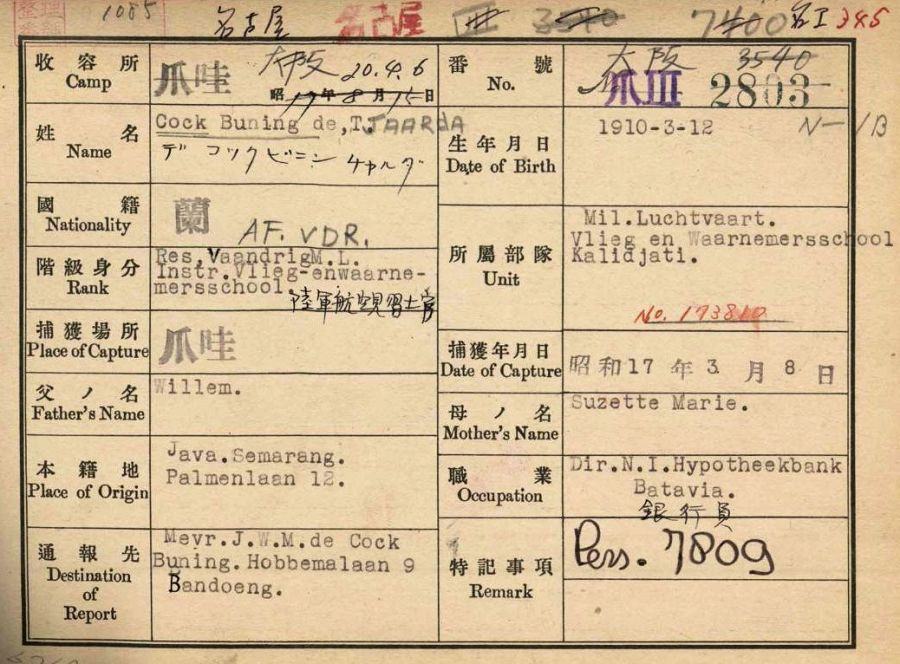 1085 名古屋 名古屋 3540 7400 名工 345
收容所
Camp
爪哇 大阪 20.4.6
昭 17年8月15日
番號
No.
大阪 3540
爪III 2803
姓名
Name
Cock Buning de, T. TJAARDA
デ コック ビニン チャルダ
生年月日
Date of Birth
1910-3-12
N-1B
國籍
Nationality
蘭
AF. VDR.
階級身分
Rank
Res.Vaandrig M.L.
Instr.Vlieg-enwaarne-
mersschool.
陸軍航空見習士官
所屬部隊
Unit
Mil.Luchtvaart.
Vlieg en Waarnemersschool
Kalidjati.
No. 173810
捕獲場所
Place of Capture
爪哇
捕獲年月日
Date of Capture
昭和17年3月8日
父ノ名
Father's Name
Willem.
母ノ名
Mother's Name
Suzette Marie.
本籍地
Place of Origin
Java.Semarang.
Palmenlaan 12.
職業
Occupation
Dir.N.I.Hypotheekbank
Batavia.
銀行員
通報先
Destination
of
Report
Mevr.J.W.M.de Cock
Buning.Hobbemalaan 9
Bandoeng.
特記事項
Remark
Pers. 7809